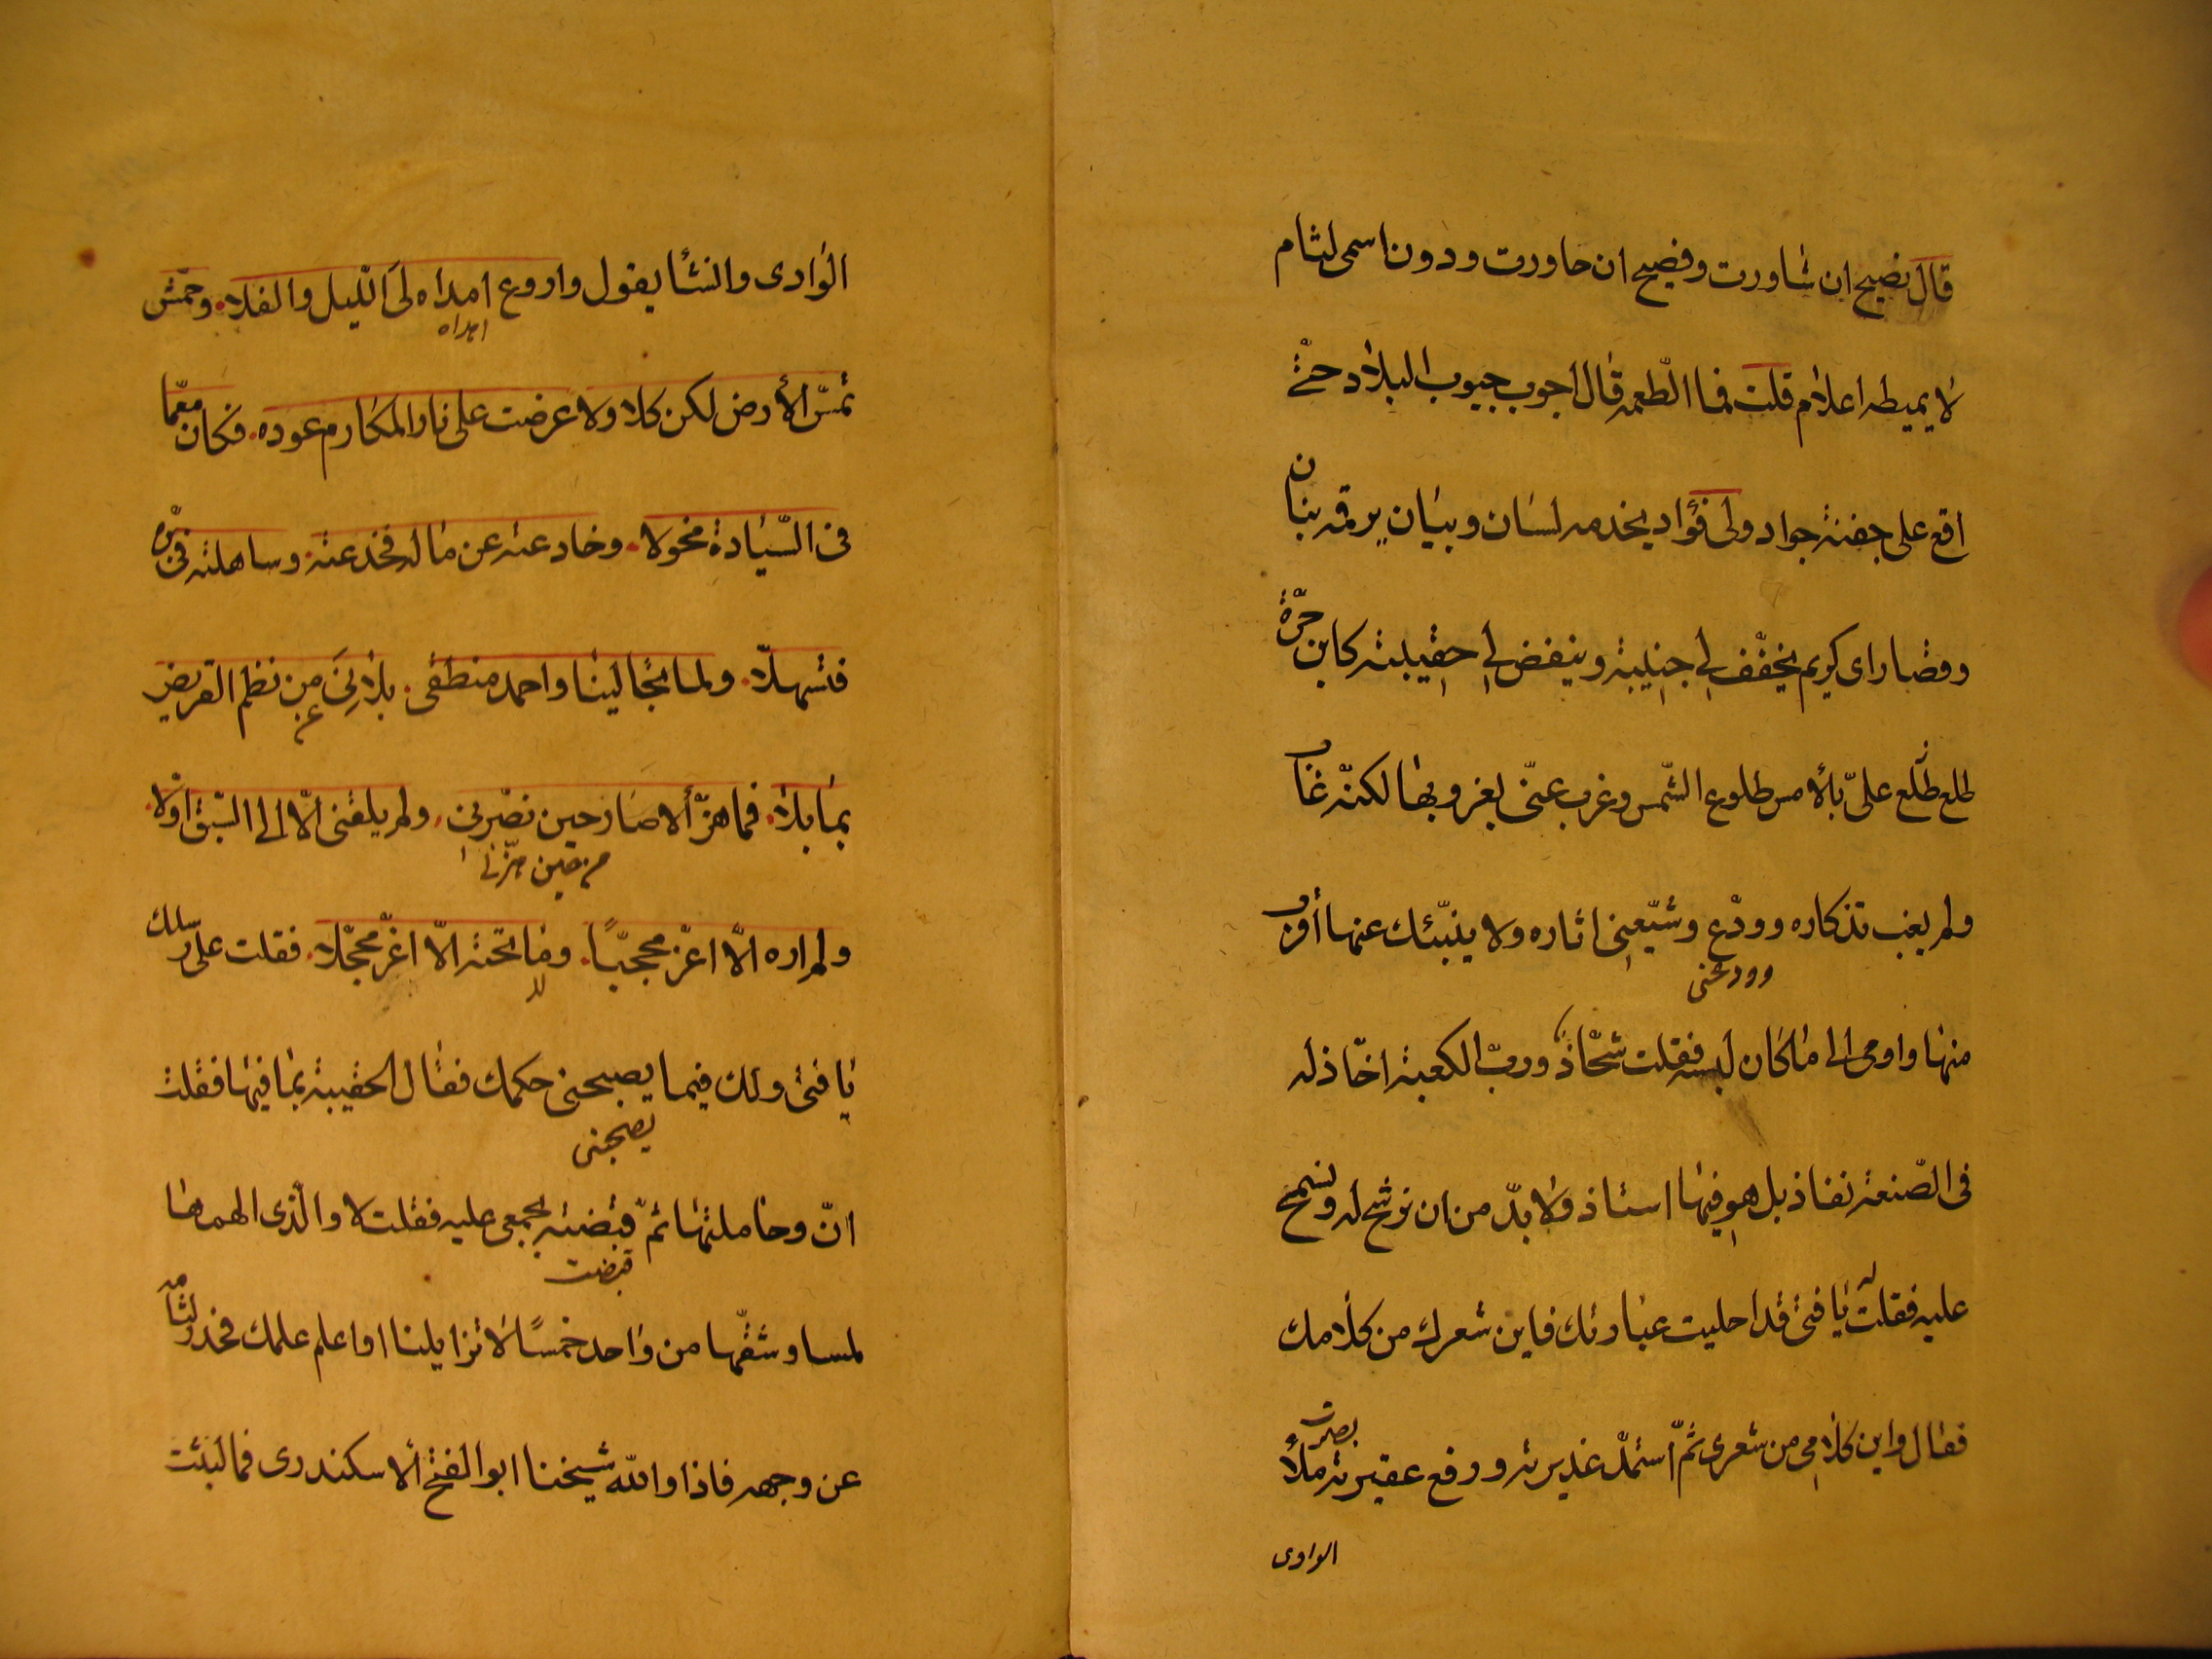 قال نصيح ان شاورت وفصيح ان حاورت ودون اسمى لثام
لا يميطه اعلام قلت فما الطعمه قال اجوب جيوب البلاد حتّى
اقع على جفنة جواد ولى فؤاد يخدمه لسان وبيان يرقمه بنان
وقصاراى كريم يخفّف لى جنيبته وينفض لى حقيبته كابن حرّة
طلع طلّع علىّ بالأمس طلوع الشّمس وغرب عنّى بغروبها لكنّه غاب
ولم يغب تذكاره وودّع وشيّعنى اثاره ولا ينبّئك عنها أقرب
وودعنى
منها واومى الى ما كان لبسه فقلت شحّاذ وربّ الكعبة اخّاذ له
فى الصّنعة نفاذ بل هو فيها استاذ ولا بدّ من ان ترشح له وتسمح
عليه فقلت له يا فتى قد احليت عبارتك فاين شعرك من كلامك
فقال واين كلامى من شعرى ثمّ استملّ غديرته ورفع عقيرته بصوت ملأ
الوادى
الوادى وانشأ يقول واروع امداه لى اللّيل والفلا. وخمّش
اهداه
تمسّ الأرض لكن كلا ولا عرضت على نار المكارم عوده. فكان معمّا
فى السّيادة مخولا. وخادعته عن ماله فخدعته. وساهلته فى برّه
فتسهلّا. ولما تجالينا واحمد منطقى. بلانى من نظم القريض
بما بلا. فما هزّ ألا صارحين نصّربى. ولم يلقنى الّا الى السّبق اوّلا.
من حين هزّنى
ولم اره الّا اعزّ محجّبًا. وما تحته الّا اغرّ محجّلا. فقلت على رسلك
يا فتى ولك فيما يصبحنى حكمك فقال الحقيبة بما فيها فقلت
يصحبنى
انّ وحاملتها ثمّ قبضته بجمعى عليه فقلت لا والّذى الهمها
قبضت
لمسا وشقّها من واحد خمسًا لا تزايلنا او اعلم علمك فحدر لثامه
عن وجهه فاذا والله شيخنا ابو الفتح ألاسكندرى فما لبثت